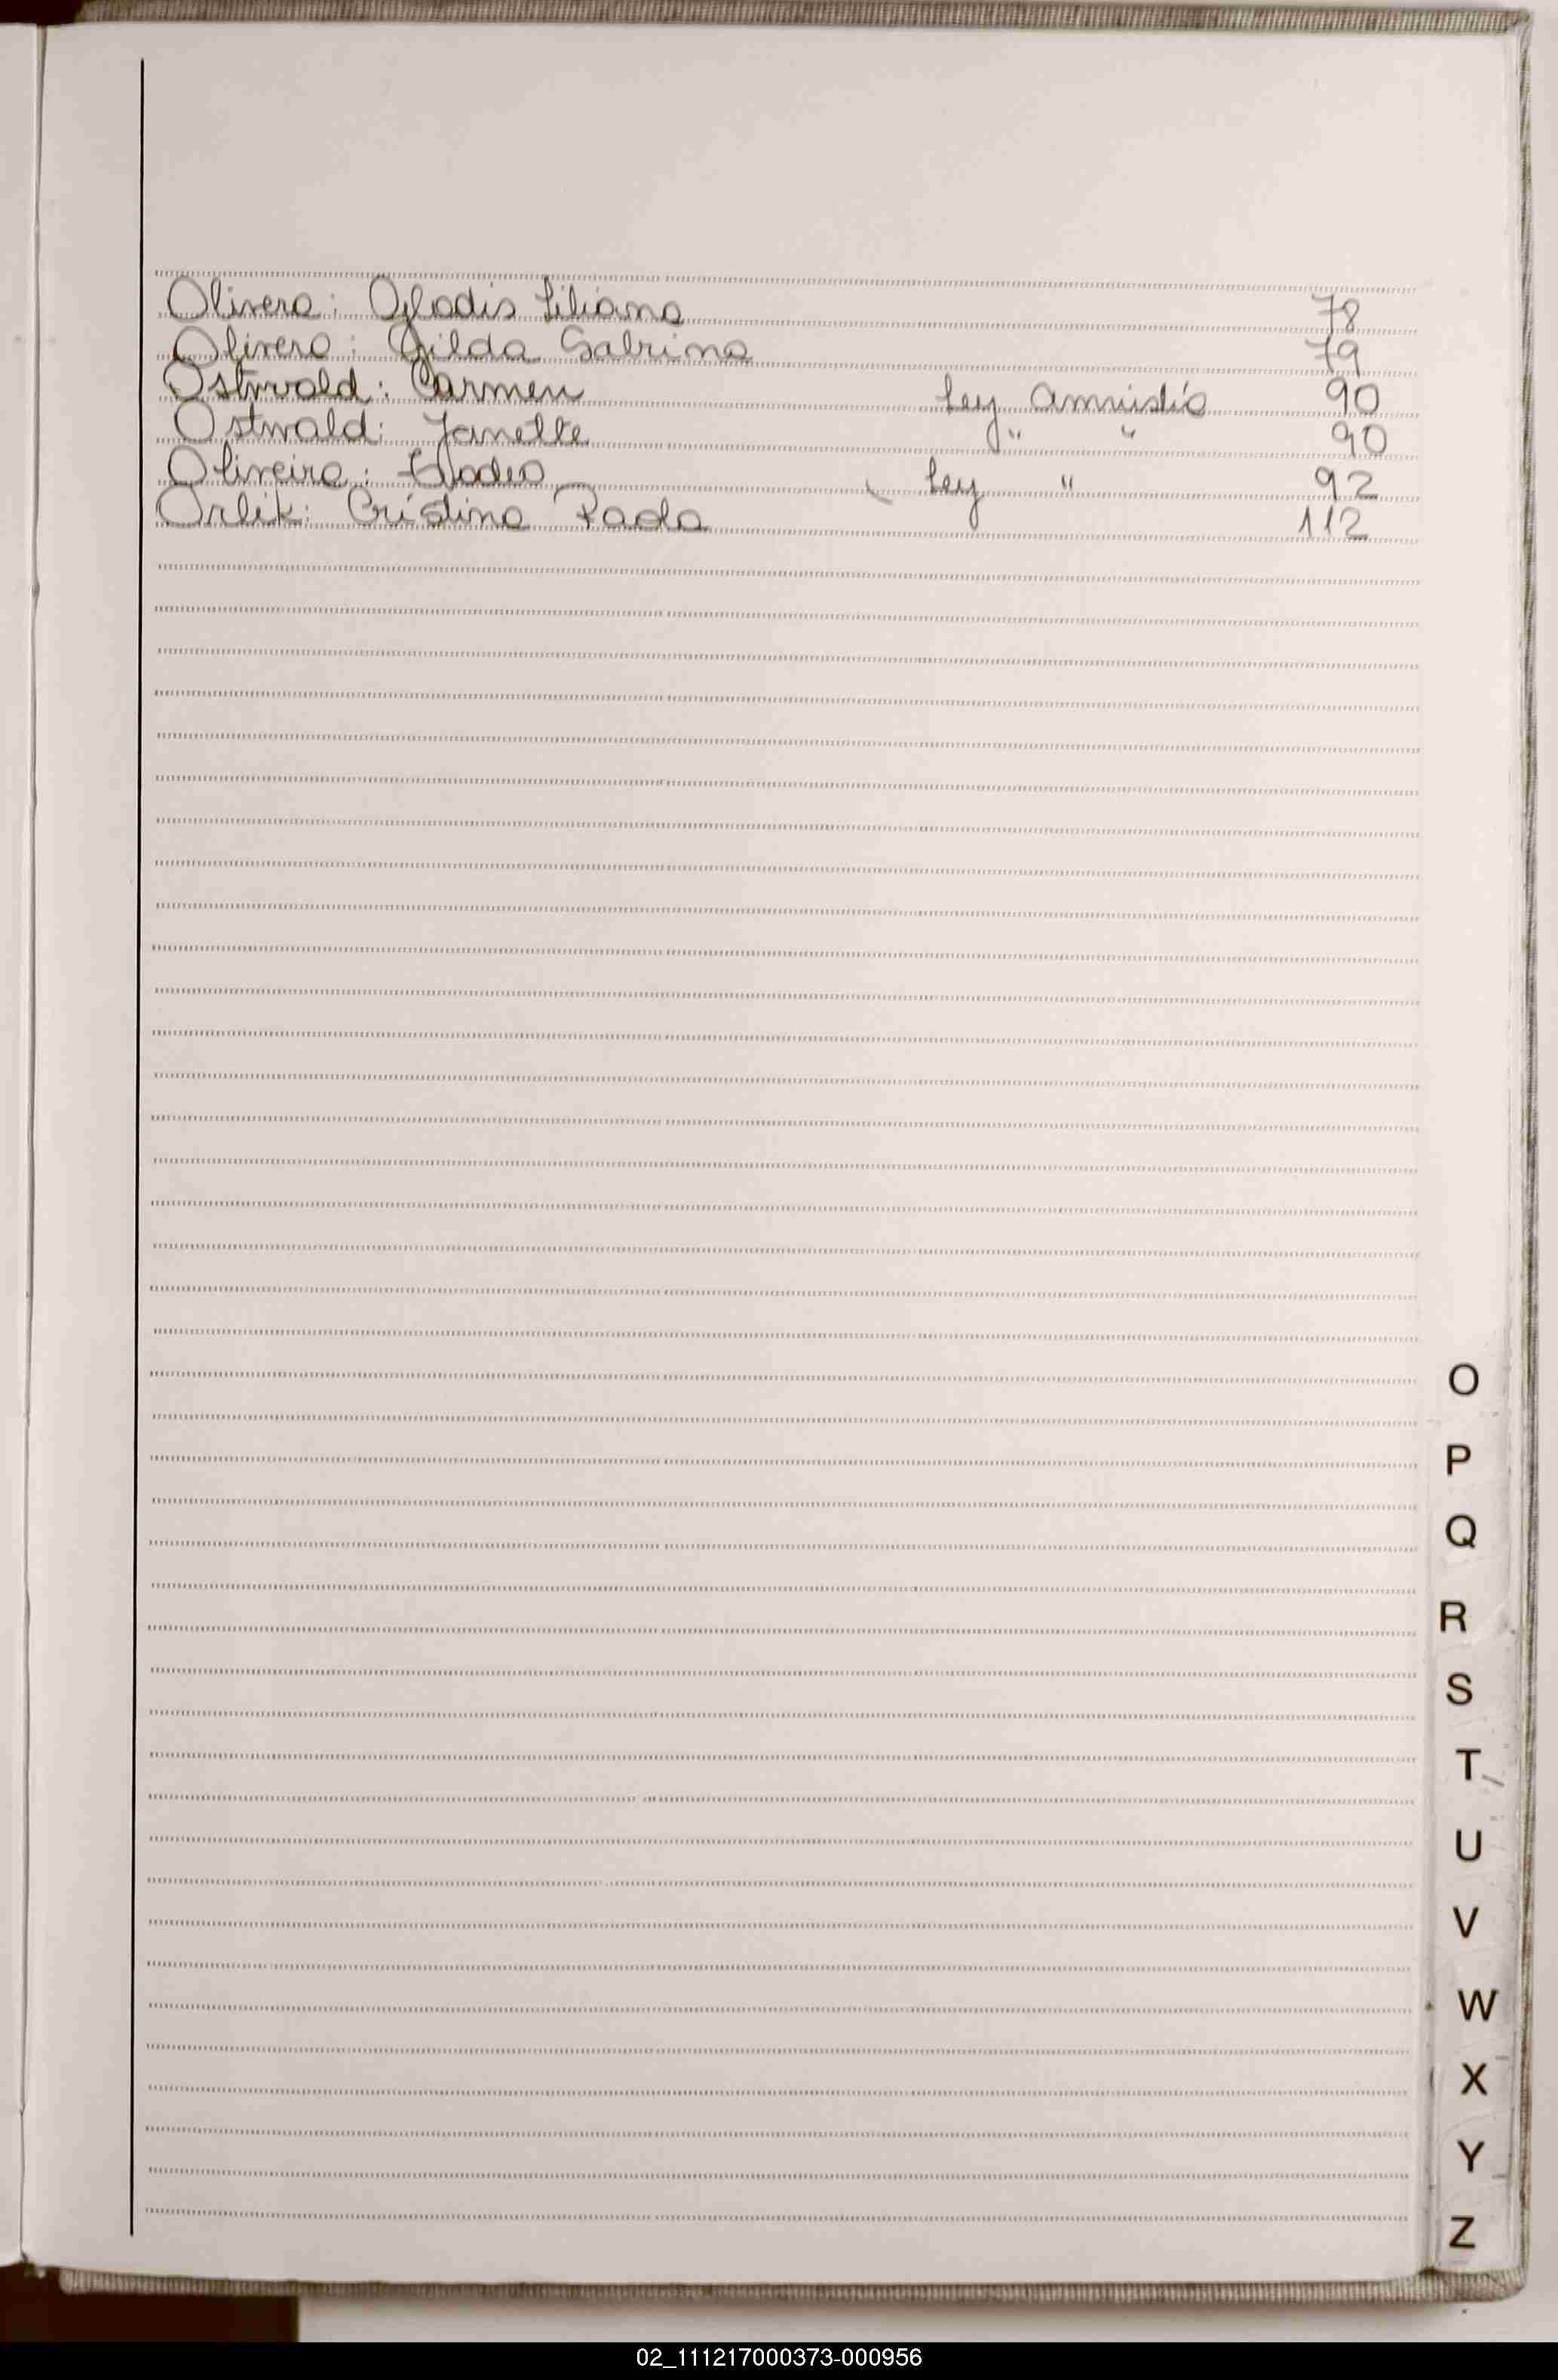 Olivera: Gladis Liliana 78
Olivera: Gilda Sabrina 79
Ostwald: Carmen Ley Amnistía 90
Ostwald: Janette " " 90
Oliveira: Ley " 92
Orlik: Cristina Paola 112
O
P
Q
R
S
T
U
V
W
X
Y
Z
02_111217000373-000956